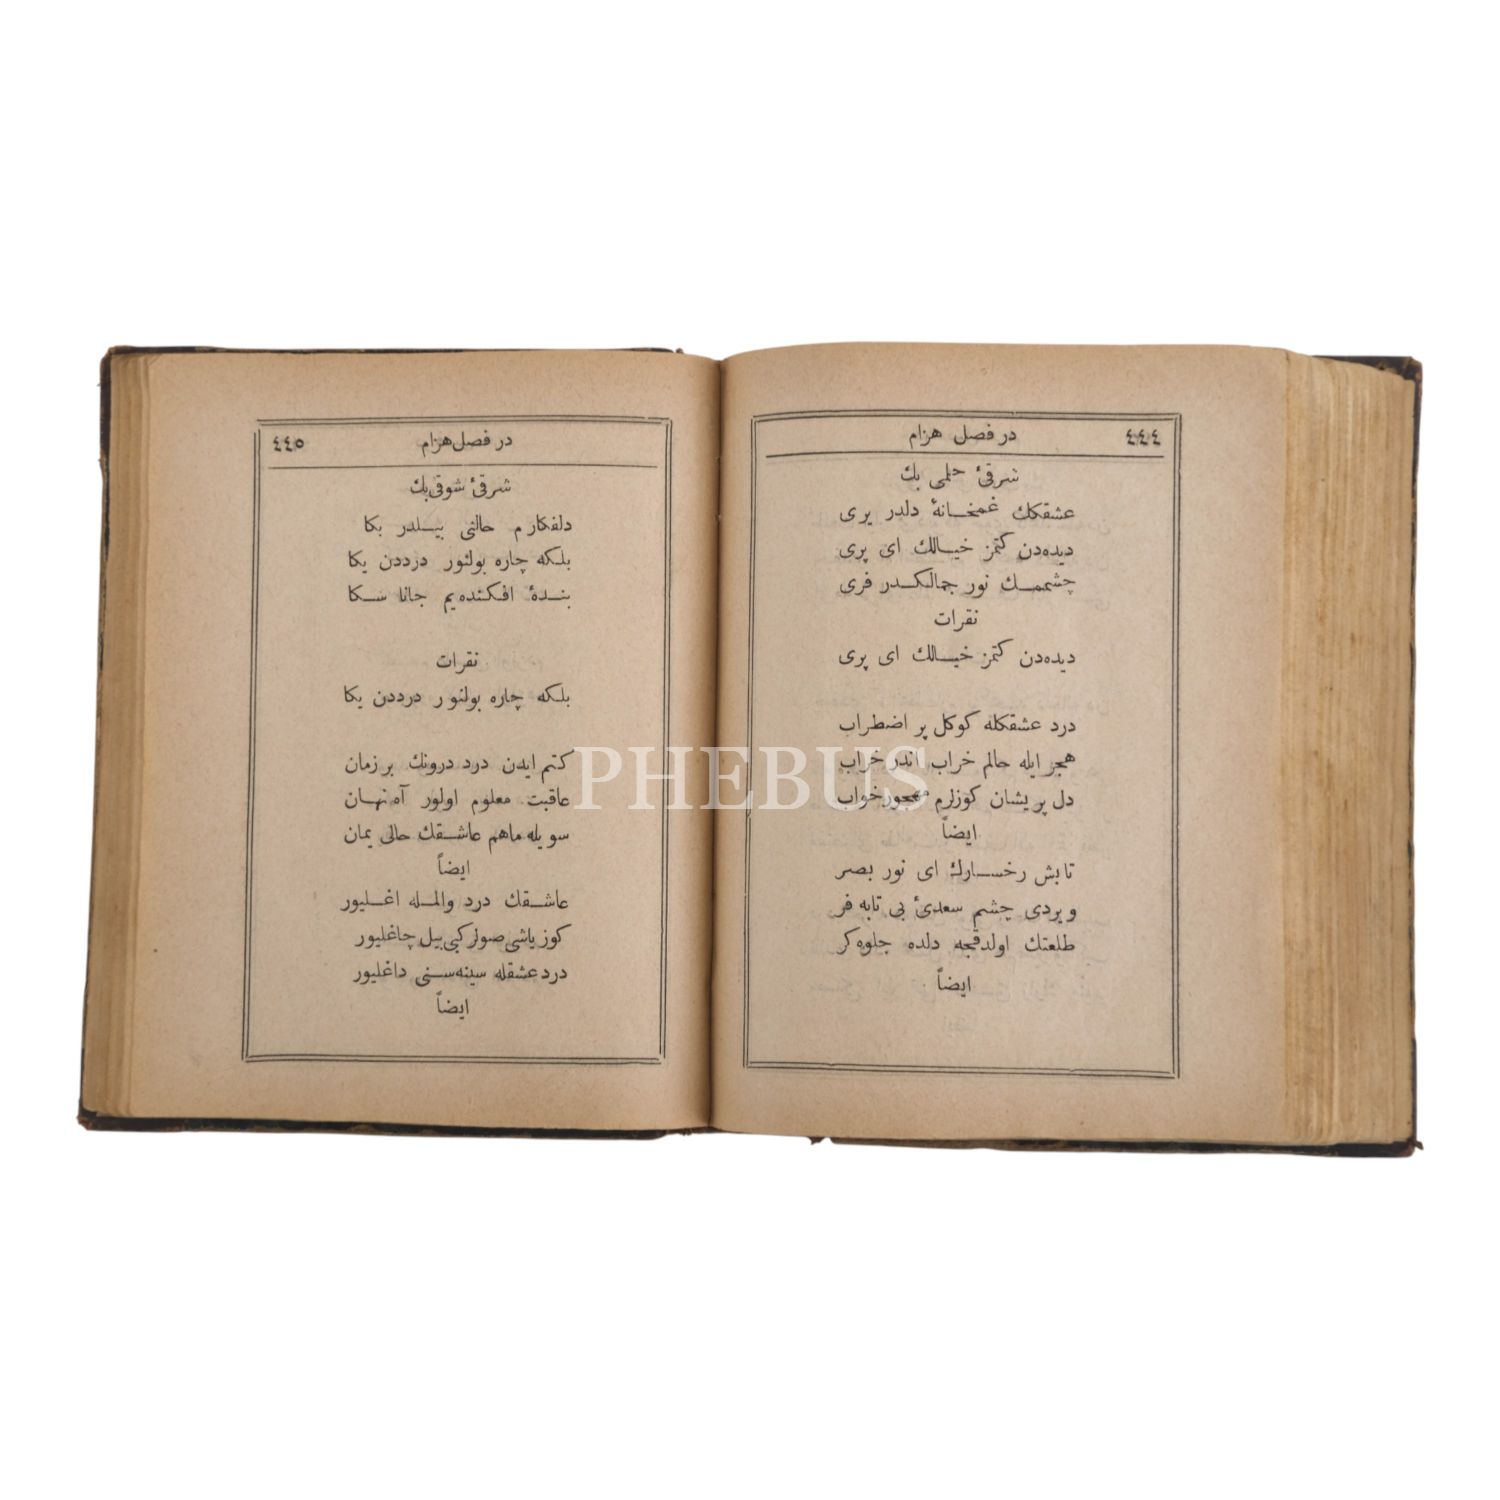 ٤٤٤ در فصل هزام
شرقئ حلمی بك
عشقكك غمخانهٔ دلدر یری
دیده‌دن كتمز خیالك ای پری
چشممك نور جمالكدر فری
نقرات
دیده‌دن كتمز خیالك ای پری
درد عشقكله كوكل پر اضطراب
هجر ایله حالم خراب اندر خراب
دل پریشان كوزلرم مهجور خواب
ایضاً
تابش رخسارك ای نور بصر
ویردی چشم سعدئ بی تابه فر
طلعتك اولدقجه دلده جلوه‌كر
ایضاً
٤٤٥ در فصل هزام
شرقئ شوقی بك
دلفكارم حالنی بیلدر بكا
بلكه چاره بولنور درددن یكا
بندهٔ افكنده‌یم جانا سكا
نقرات
بلكه چاره بولنور درددن یكا
كتم ایدن درد درونك بر زمان
عاقبت معلوم اولور آه نهان
سویله ماهم عاشقك حالی یمان
ایضاً
عاشقك درد والمله اغلیور
كوز یاشی صولر كبی بیل چاغلیور
درد عشقله سینه‌سنی داغلیور
ایضاً
PHEBUS